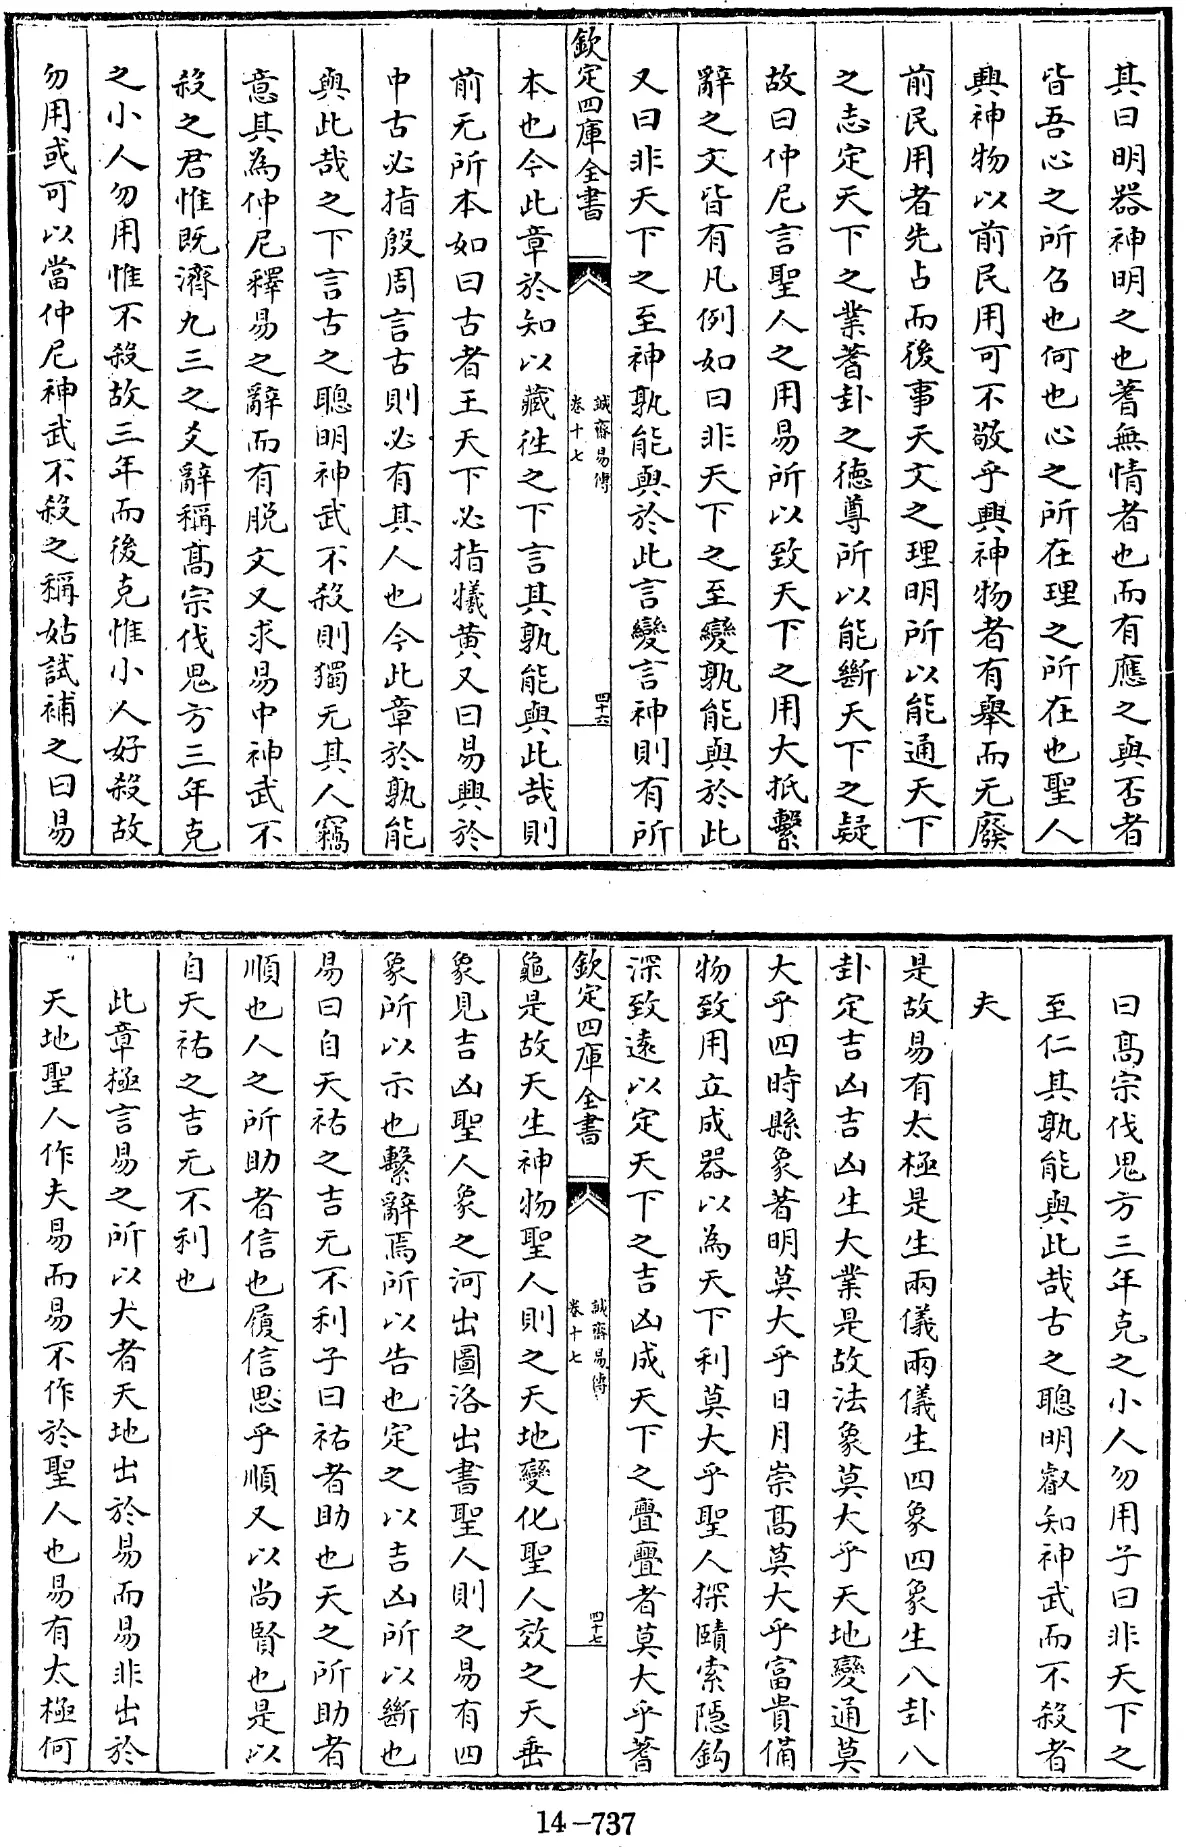 其曰明器神明之也蓍無情者也而有應之與否者
皆吾心之所召也何也心之所在理之所在也聖人
興神物以前民用可不敬乎興神物者有舉而无廢
前民用者先占而後事天文之理明所以能通天下
之志定天下之業蓍卦之德尊所以能斷天下之疑
故曰仲尼言聖人之用易所以致天下之用大抵繫
辭之文皆有凡例如曰非天下之至變孰能與於此
又曰非天下之至神孰能與於此言變言神則有所
欽定四庫全書
誠齋易傳
卷十七
四十六
本也今此章於知以藏徃之下言其孰能與此哉則
前无所本如曰古者王天下必指犧黄又曰易興於
中古必指殷周言古則必有其人也今此章於孰能
與此哉之下言古之聰明神武不殺則獨无其人竊
意其為仲尼釋易之辭而有脱文又求易中神武不
殺之君惟既濟九三之爻辭稱髙宗伐鬼方三年克
之小人勿用惟不殺故三年而後克惟小人好殺故
勿用或可以當仲尼神武不殺之稱姑試補之曰易
曰髙宗伐鬼方三年克之小人勿用子曰非天下之
至仁其孰能與此哉古之聰明叡知神武而不殺者
夫
是故易有太極是生兩儀兩儀生四象四象生八卦八
卦定吉凶吉凶生大業是故法象莫大乎天地變通莫
大乎四時縣象著明莫大乎日月崇髙莫大乎富貴備
物致用立成器以為天下利莫大乎聖人探賾索隱鈎
深致遠以定天下之吉凶成天下之亹亹者莫大乎蓍
欽定四庫全書
誠齋易傳
卷十七
四十七
龜是故天生神物聖人則之天地變化聖人效之天垂
象見吉凶聖人象之河出圖洛出書聖人則之易有四
象所以示也繫辭焉所以告也定之以吉凶所以斷也
易曰自天祐之吉无不利子曰祐者助也天之所助者
順也人之所助者信也履信思乎順又以尚賢也是以
自天祐之吉无不利也
此章極言易之所以大者天地出於易而易非出於
天地聖人作夫易而易不作於聖人也易有太極何
14-737